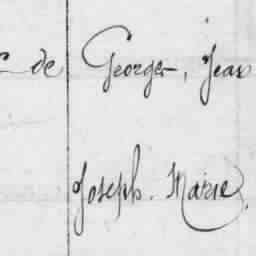 de Georges, Jean
Joseph. Marie.